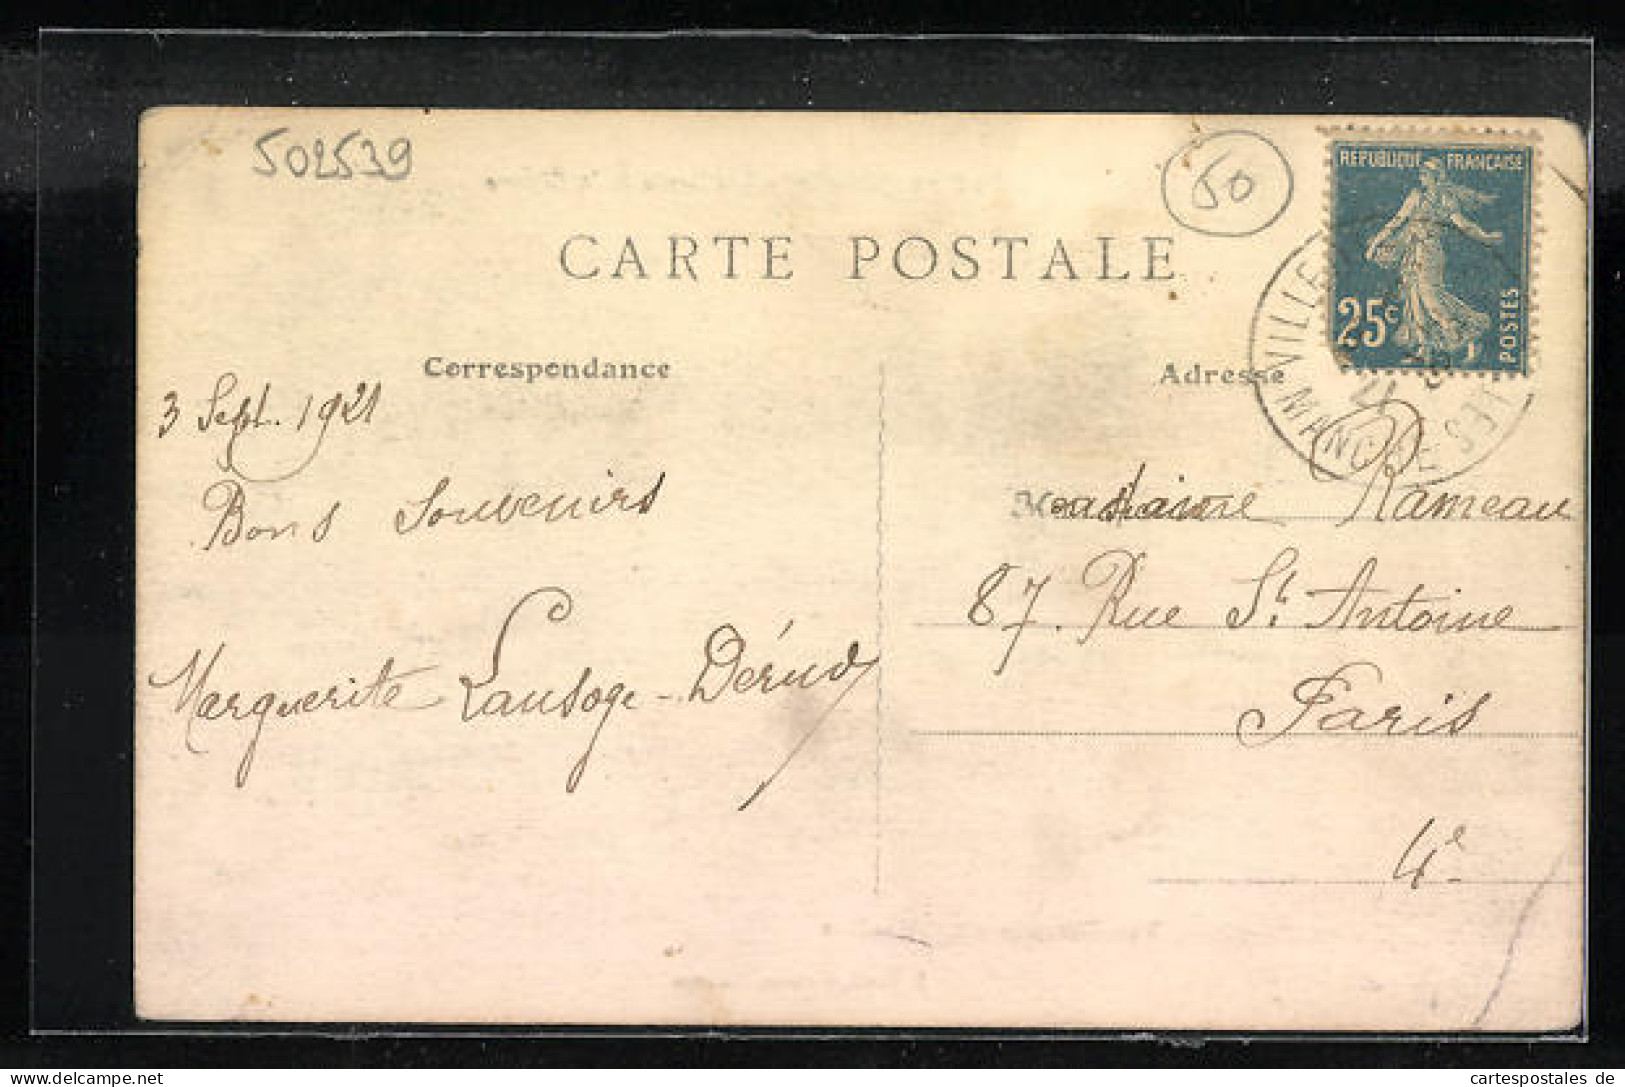 502539
50
REPUBLIQUE FRANÇAISE
25c
POSTES
CARTE POSTALE
VILLE
MANCHE
21
Correspondance
Adresse
3 Sept. 1921
Bons Souvenirs
Marguerite
Madame Rameau
87. Rue St. Antoine
Paris
4e
cartespostales de
delcampe.net